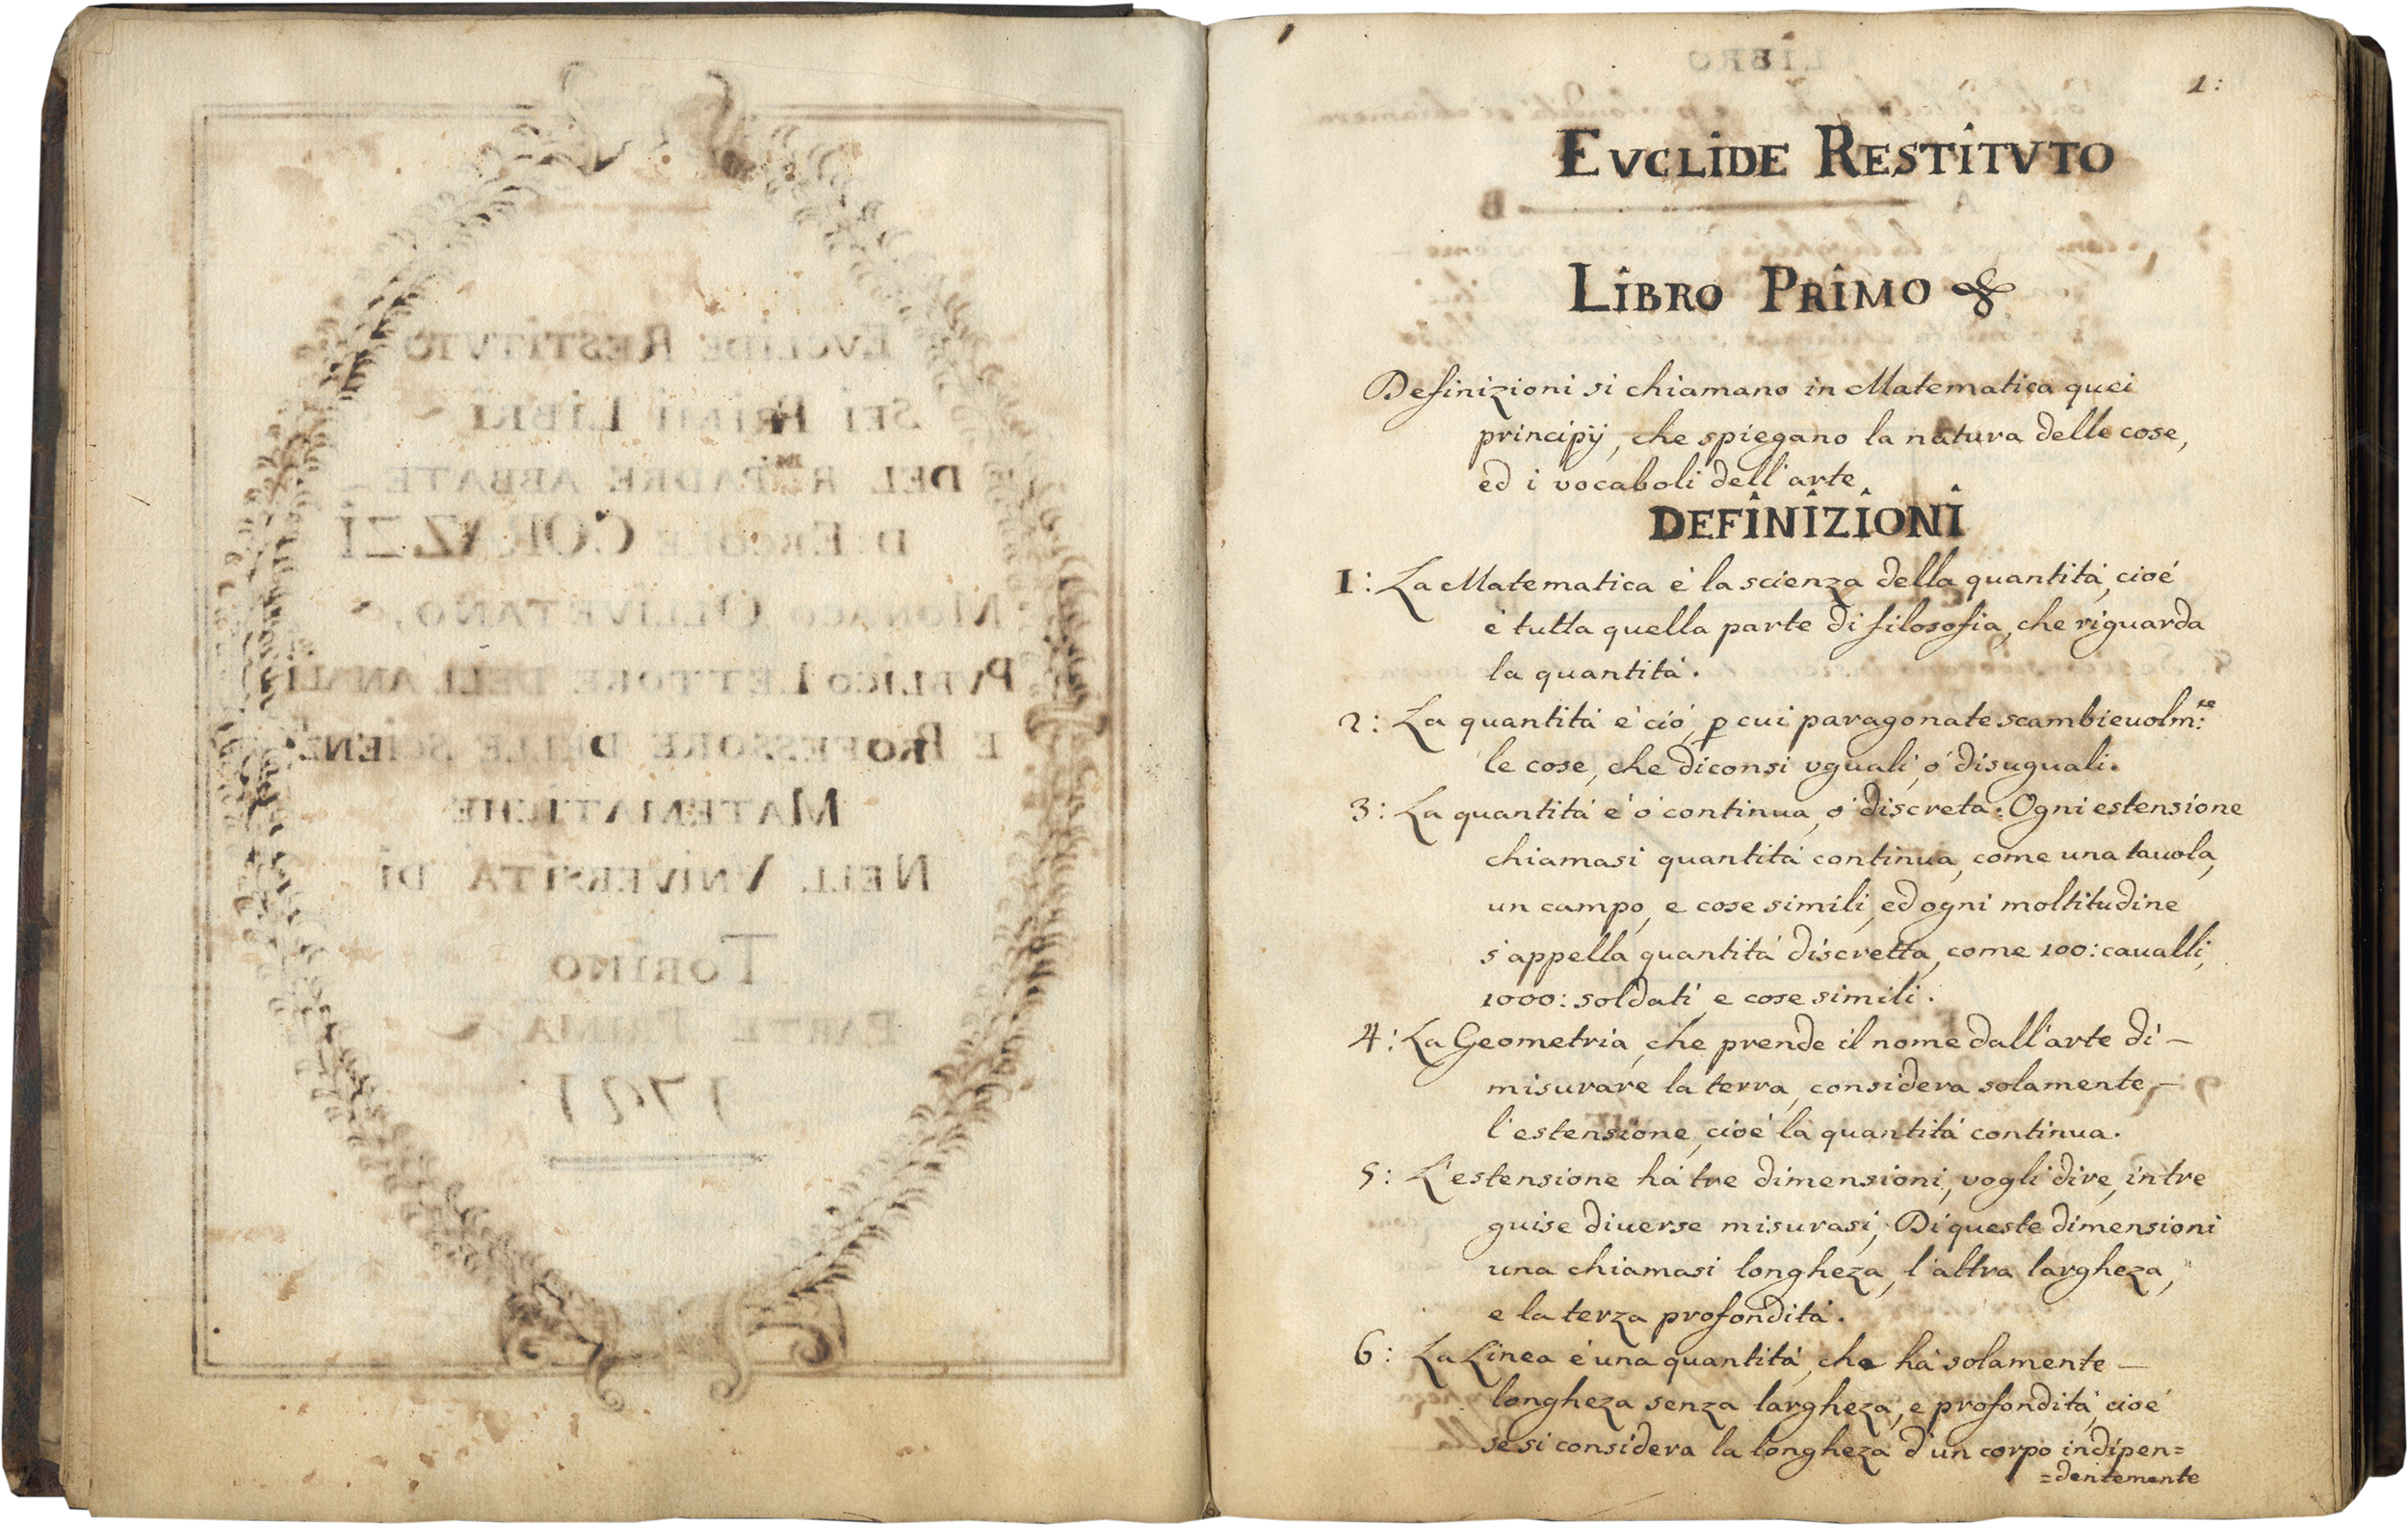 EVCLIDE RESTITVTO
SEI PRIMI LIBRI
DEL R.mo PADRE ABBATE
D. ERCOLE CORAZZI
MONACO OLLIVETANO,
PVBLICO LETTORE DELL
E PROFESSORE DELLE SCIENZE
MATEMATICHE
NELL VNIVERSITÀ DI
TORINO
PARTE PRIMA
1721
1:
EVCLIDE RESTITVTO
LIBRO PRIMO
Definizioni si chiamano in Matematica quei
principÿ, che spiegano la natura delle cose,
ed i vocaboli dell'arte
DEFINIZIONI
1: La Matematica é la scienza della quantitá, cioé
é tutta quella parte di filosofia, che riguarda
la quantitá.
2: La quantitá é ció, p cui paragonate scambieuolm:te
le cose, che diconsi vguali, ó disuguali.
3: La quantitá é ó continua, ó discreta: Ogni estensione
chiamasi quantitá continua, come una tauola,
un campo, e cose simili, ed ogni moltitudine
s'appella quantitá discretta, come 100: caualli,
1000: soldati, e cose simili.
4: La Geometria, che prende il nome dall'arte di –
misurare la terra, considera solamente –
l'estensione, cioé la quantitá continua.
5: L'estensione há tre dimensioni, vogli dire, in tre
guise diuerse misurasi; Di queste dimensioni
una chiamasi longheza, l'altra largheza,
e la terza profonditá.
6: La Linea é una quantitá, che há solamente –
longheza senza largheza, e profonditá, cioé
se si considera la longheza d'un corpo indipen=
=dentemente